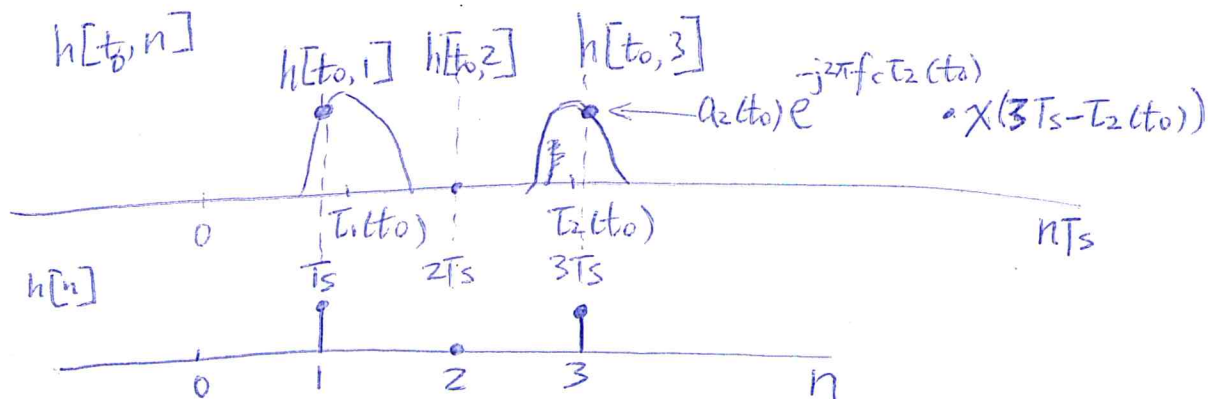 h[t₀,n]
h[t₀,1] h[t₀,2] h[t₀,3]
a₂(t₀)e^{-j2πf_cτ₂(t₀)} · χ(3Ts-τ₂(t₀))
0 τ₁(t₀) τ₂(t₀) nTs
Ts 2Ts 3Ts
h[n]
0 1 2 3 n